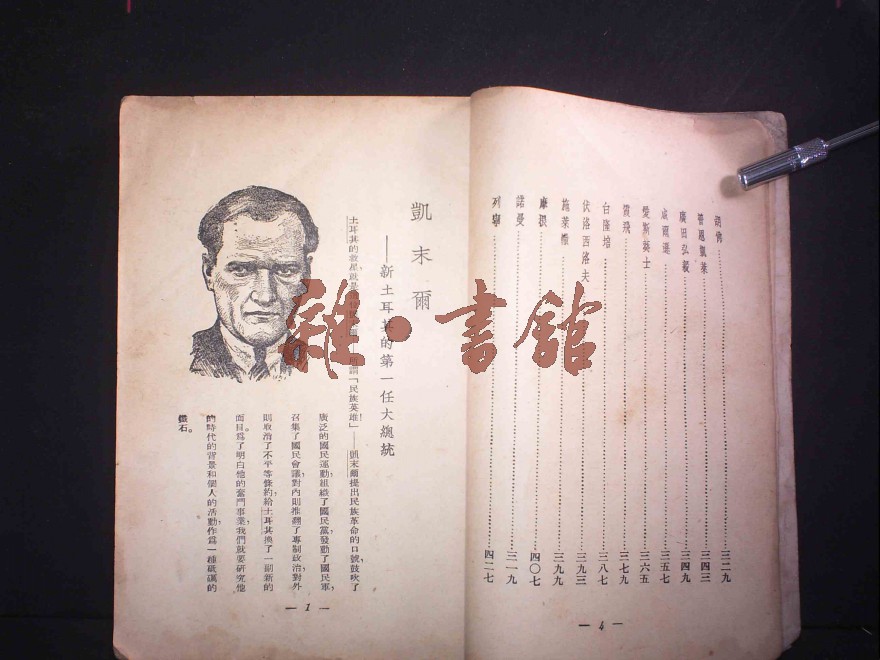 胡佛……三二九
普恩凱萊……三四三
廣田弘毅……三四九
威爾遜……三五七
愛斯葵士……三六五
霞飛……三七九
三八七
伏洛西洛夫……三九三
三九九
摩根……四〇七
諾曼……三一九
列寧……四二七
— 4 —
凱末爾
——新土耳其的第一任大總統
土耳其的救星就是「民族英雄」——凱末爾提出民族革命的口號,鼓吹了
廣泛的國民運動,組織了國民黨,發動了國民軍,
召集了國民會議,對內則推翻了專制政治,對外
則取消了不平等條約,給土耳其換了一副新的
面目。爲了明白他的奮鬥事業,我們就要研究他
的時代的背景和個人的活動,作爲一種砥礪的
礎石。
— 1 —
雜·書館